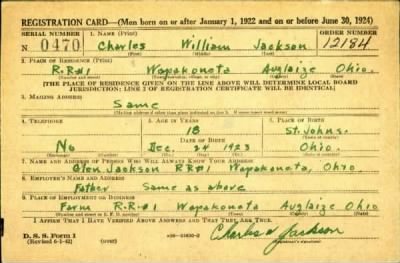 REGISTRATION CARD—(Men born on or after January 1, 1922 and on or before June 30, 1924)
SERIAL NUMBER 1. NAME (Print) ORDER NUMBER
N 0470 Charles William Jackson 12184
(First) (Middle) (Last)
2. PLACE OF RESIDENCE (Print)
R.R#1 Wapakoneta Auglaize Ohio.
(THE PLACE OF RESIDENCE GIVEN ON THE LINE ABOVE WILL DETERMINE LOCAL BOARD
JURISDICTION; LINE 2 OF REGISTRATION CERTIFICATE WILL BE IDENTICAL)
3. MAILING ADDRESS
Same
4. TELEPHONE 5. AGE IN YEARS 6. PLACE OF BIRTH
18 St. Johns.
DATE OF BIRTH
No Dec. 24 1923 Ohio.
7. NAME AND ADDRESS OF PERSON WHO WILL ALWAYS KNOW YOUR ADDRESS
Glen Jackson RR#1 Wapakoneta, Ohio.
8. EMPLOYER'S NAME AND ADDRESS
Father Same as above
9. PLACE OF EMPLOYMENT OR BUSINESS
Farm R.R#1 Wapakoneta Auglaize Ohio
I AFFIRM THAT I HAVE VERIFIED ABOVE ANSWERS AND THAT THEY ARE TRUE.
D. S. S. Form 1
(Revised 6-1-42) (over) Charles W Jackson
(Registrant's signature)